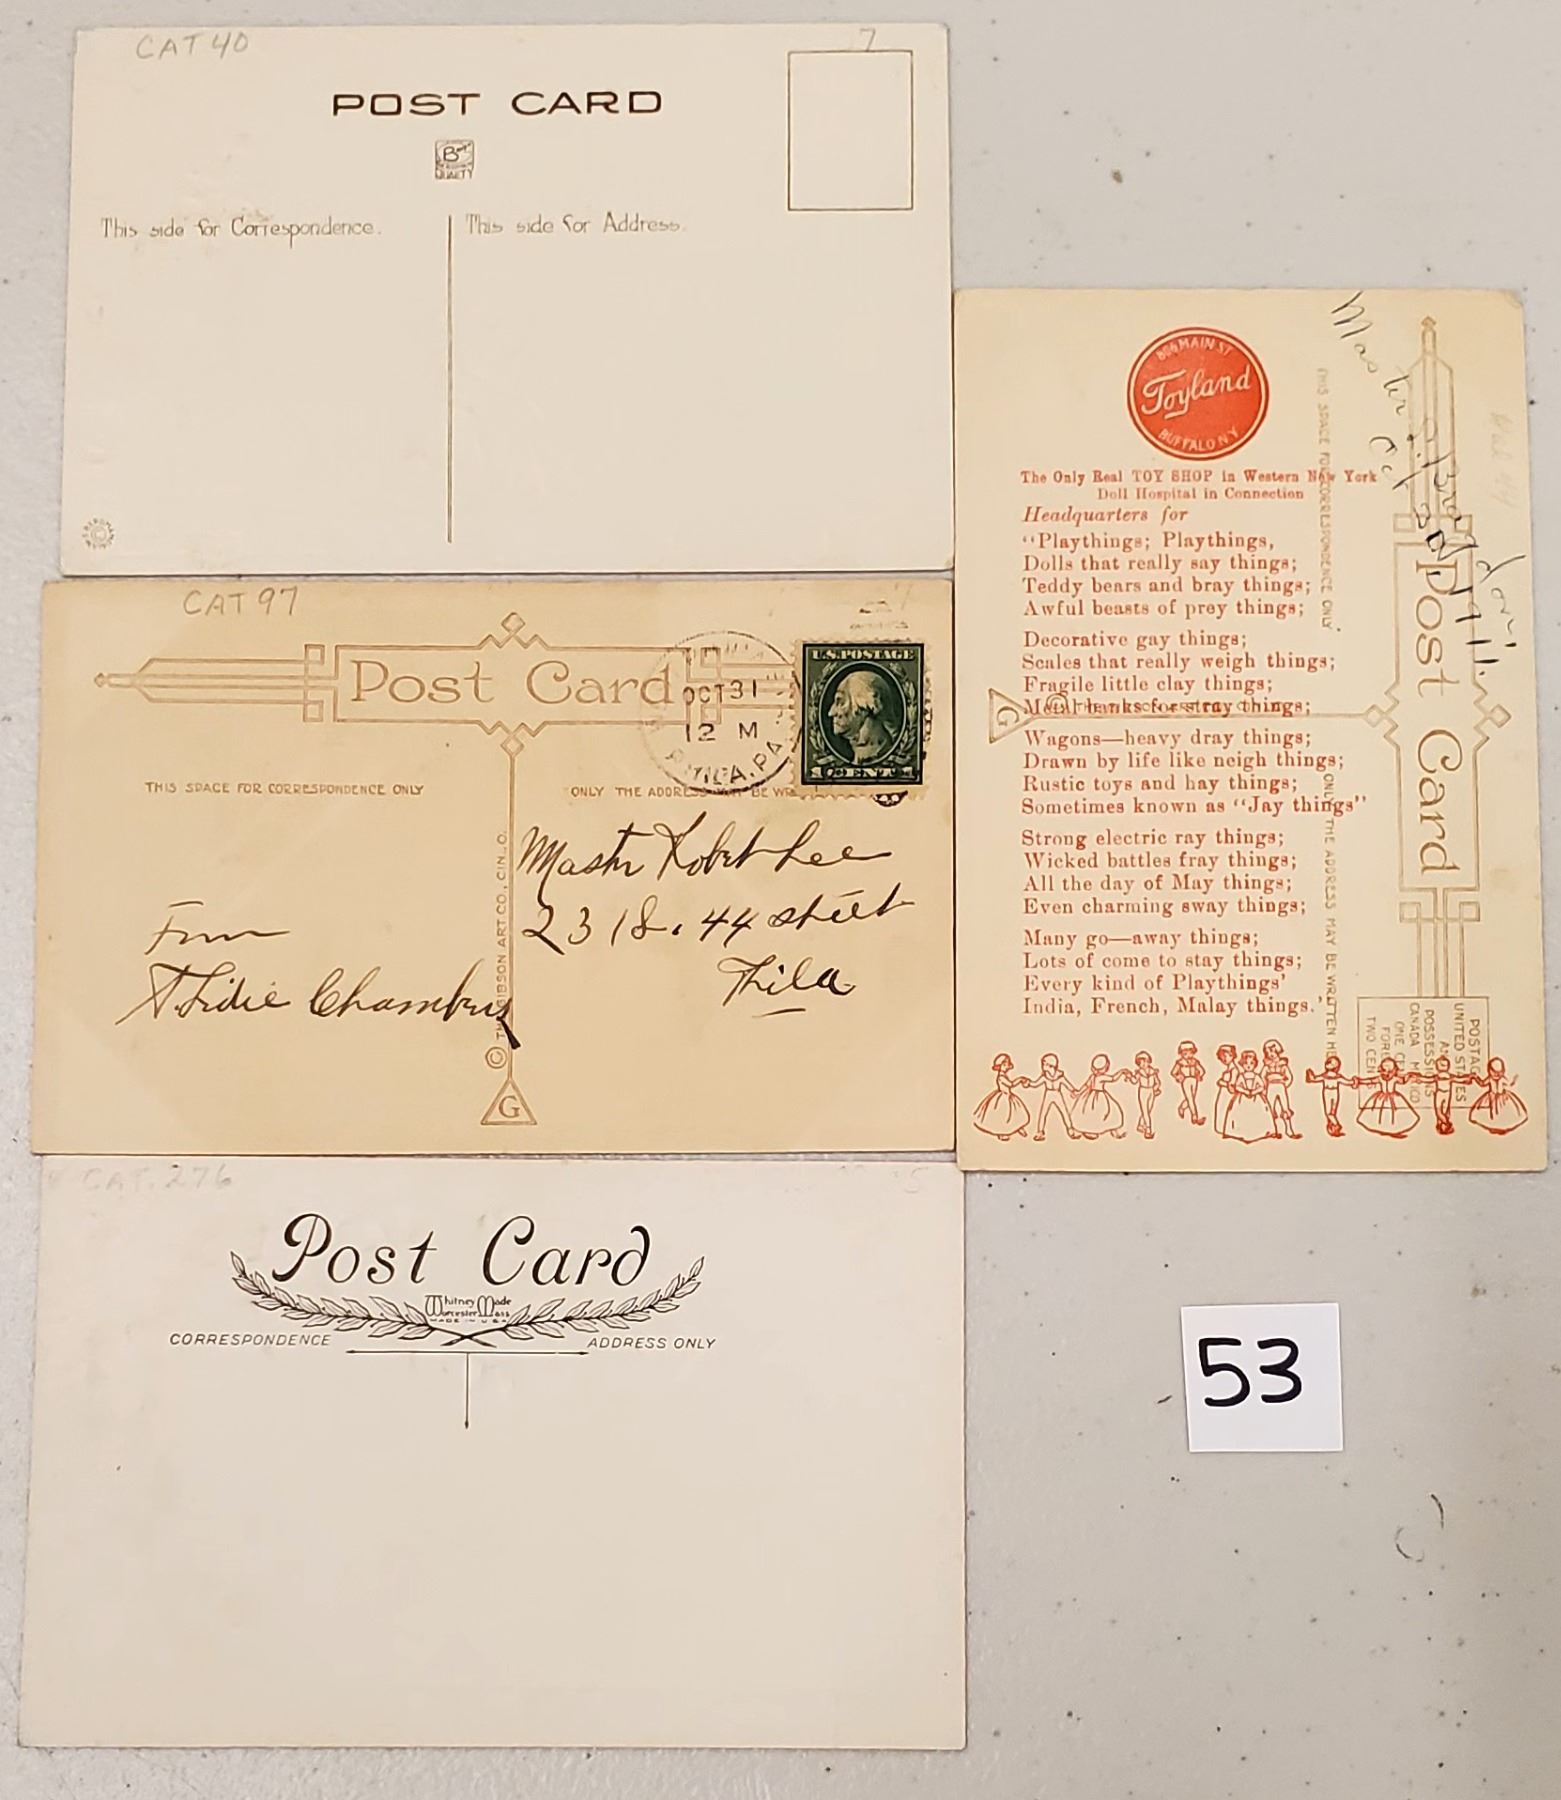 CAT 40
7
POST CARD
QUALITY
This side for Correspondence.
This side for Address.
CAT 97
Post Card
OCT 31
12 M
PHILA. PA
U.S. POSTAGE
1 CENT 1
THIS SPACE FOR CORRESPONDENCE ONLY
ONLY THE ADDRESS MAY BE WR
Master Robert Lee
2318. 44 street
Phila
From
Lidie Chambers
© THE GIBSON ART CO., CIN., O.
G
806 MAIN ST
Toyland
BUFFALO N.Y
The Only Real TOY SHOP in Western New York
Doll Hospital in Connection
Headquarters for
"Playthings; Playthings,
Dolls that really say things;
Teddy bears and bray things;
Awful beasts of prey things;
Decorative gay things;
Scales that really weigh things;
Fragile little clay things;
Metal banks for stray things;
Wagons—heavy dray things;
Drawn by life like neigh things;
Rustic toys and hay things;
Sometimes known as "Jay things"
Strong electric ray things;
Wicked battles fray things;
All the day of May things;
Even charming sway things;
Many go—away things;
Lots of come to stay things;
Every kind of Playthings'
India, French, Malay things.'
Master
Oct
Post Card
THIS SPACE FOR CORRESPONDENCE ONLY
ONLY THE ADDRESS MAY BE WRITTEN HE
G
POSTAG
UNITED STATES
AND
POSSESSIONS
CANADA MEXICO
ONE CE
FOR
TWO CENT
CAT. 276
5
Post Card
Whitney Made
Worcester Mass
MADE IN U.S.A.
CORRESPONDENCE
ADDRESS ONLY
53